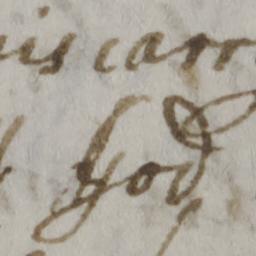 iscarr
God